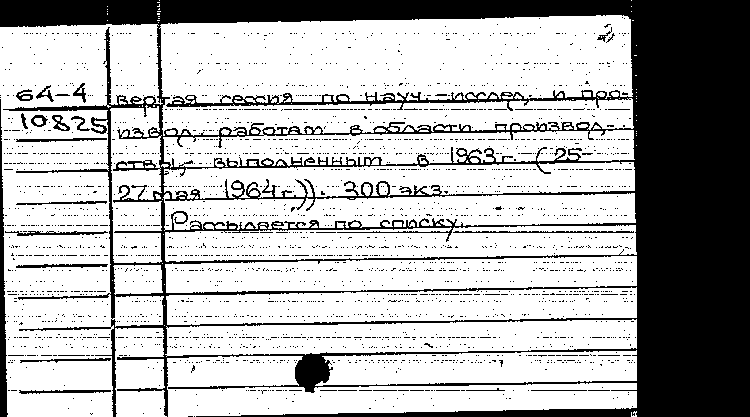 2
64-4 вертая сессия по науч.-исслед. и про-
10825 извод. работам в области производ-
ства, выполненным в 1963 г. (25-
27 мая 1964 г.)). 300 экз.
Рассылается по списку.